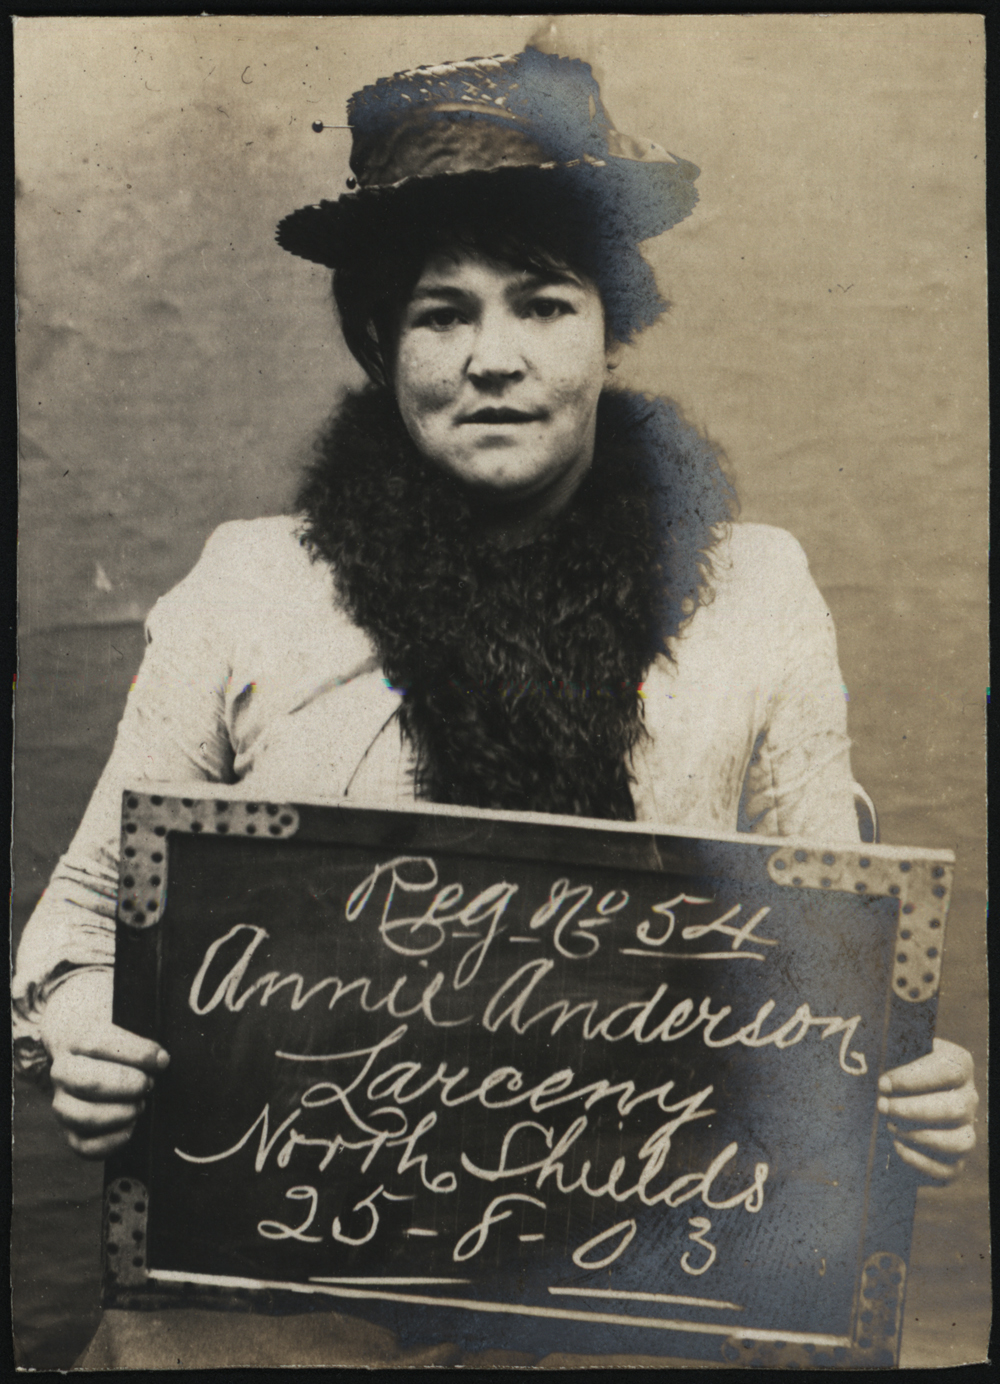 Reg No 54
Annie Anderson
Larceny
North Shields
25-8-03